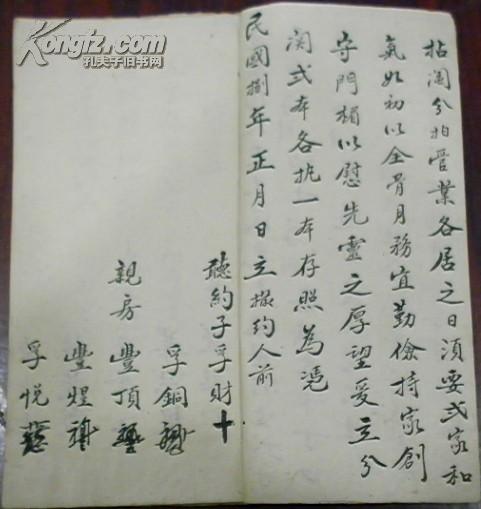 Kongfz.com
孔夫子旧书网
拈阄分拍管業各居之日須要弍家和
氣如初以全骨月務宜勤儉持家創
守門楣以慰先靈之厚望爰立分
関弍本各执一本存照為凴
民國捌年正月日立撥約人前
聽約子孚財十
孚銅
親房豐頂
豐煌
孚悦